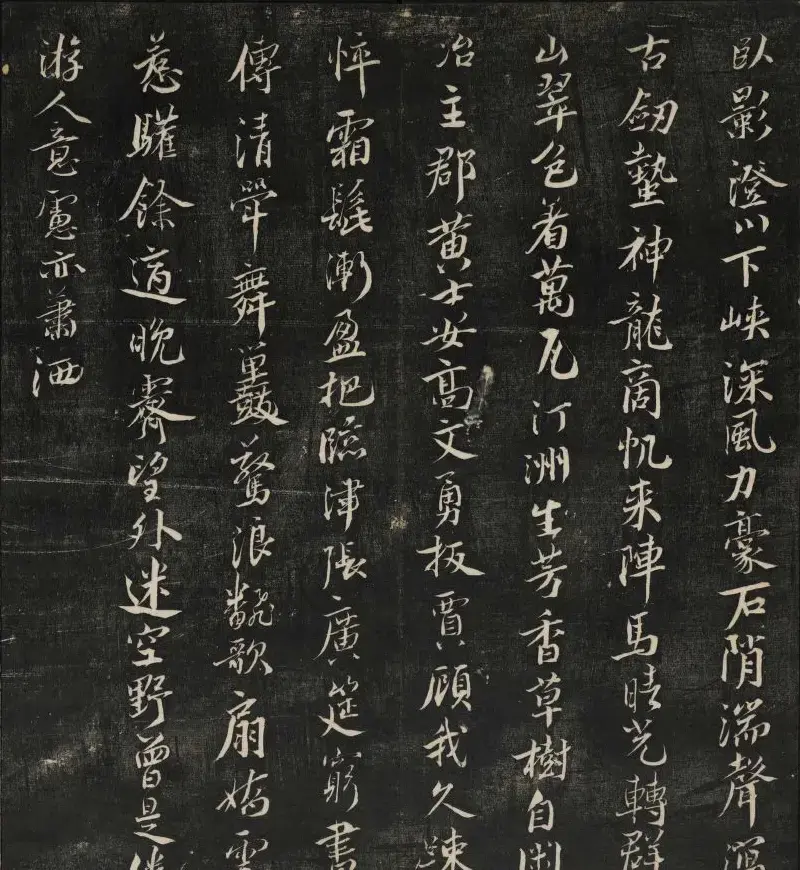 臥影澄川下峽深風力豪石隋湍聲瀉
古劒蟄神龍商帆来陣馬晴光轉群
山翠色著萬瓦汀洲生芳香草樹自閑
冶主郡黄士安高文勇扳賈顧我久疎
悴霜髭漸盈把臨津張廣筵窮晝
傳清斝舞罤鼓驚浪翻歌扇嬌雲
惹驩餘適晚霽望外迷空野曾是
游人意慮亦蕭洒